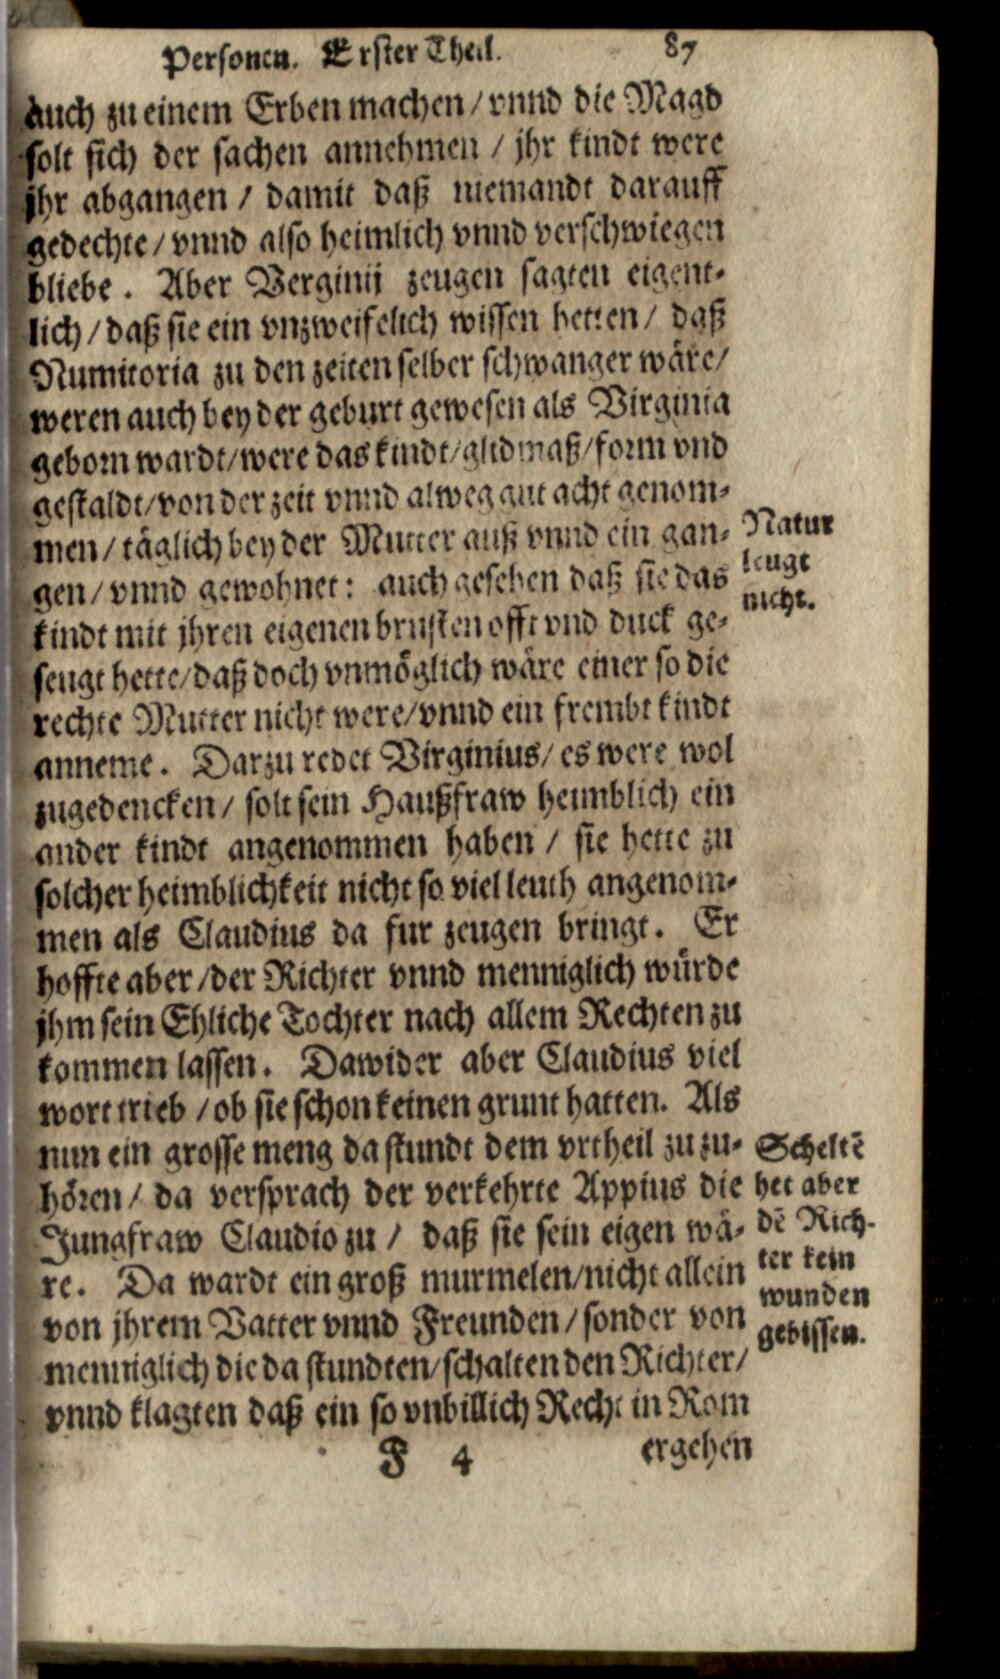 Personen. Erster Theil. 87
auch zu einem Erben machen / vnnd die Magd
solt sich der sachen annehmen / jhr kindt were
jhr abgangen / damit daß niemandt darauff
gedechte / vnnd also heimlich vnnd verschwiegen
bliebe. Aber Verginij zeugen sagten eigent-
lich / daß sie ein vnzweifelich wissen hetten / daß
Numitoria zu den zeiten selber schwanger wäre /
weren auch bey der geburt gewesen als Virginia
geborn wardt / were das kindt / glidmaß / form vnd
gestaldt / von der zeit vnnd alweg gut acht genom-
men / täglich bey der Mutter auß vnnd ein gan-
gen / vnnd gewohnet: auch gesehen daß sie das
kindt mit jhren eigenen brusten offt vnd duck ge-
seugt hette / daß doch vnmöglich wäre einer so die
rechte Mutter nicht were / vnnd ein frembt kindt
anneme. Darzu redet Virginius / es were wol
zugedencken / solt sein Haußfraw heimblich ein
ander kindt angenommen haben / sie hette zu
solcher heimblichkeit nicht so viel leuth angenom-
men als Claudius da fur zeugen bringt. Er
hoffte aber / der Richter vnnd menniglich würde
jhm sein Ehliche Tochter nach allem Rechten zu
kommen lassen. Dawider aber Claudius viel
wort trieb / ob sie schon keinen grunt hatten. Als
nun ein grosse meng da stundt dem vrtheil zu zu-
hören / da versprach der verkehrte Appius die
Jungfraw Claudio zu / daß sie sein eigen wä-
re. Da wardt ein groß murmelen / nicht allein
von jhrem Vatter vnnd Freunden / sonder von
menniglich die da stundten / schalten den Richter /
vnnd klagten daß ein so vnbillich Recht in Rom
F 4 ergehen
Natur
leugt
nicht.
Scheltē
het aber
dē Rich-
ter kein
wunden
gebissen.